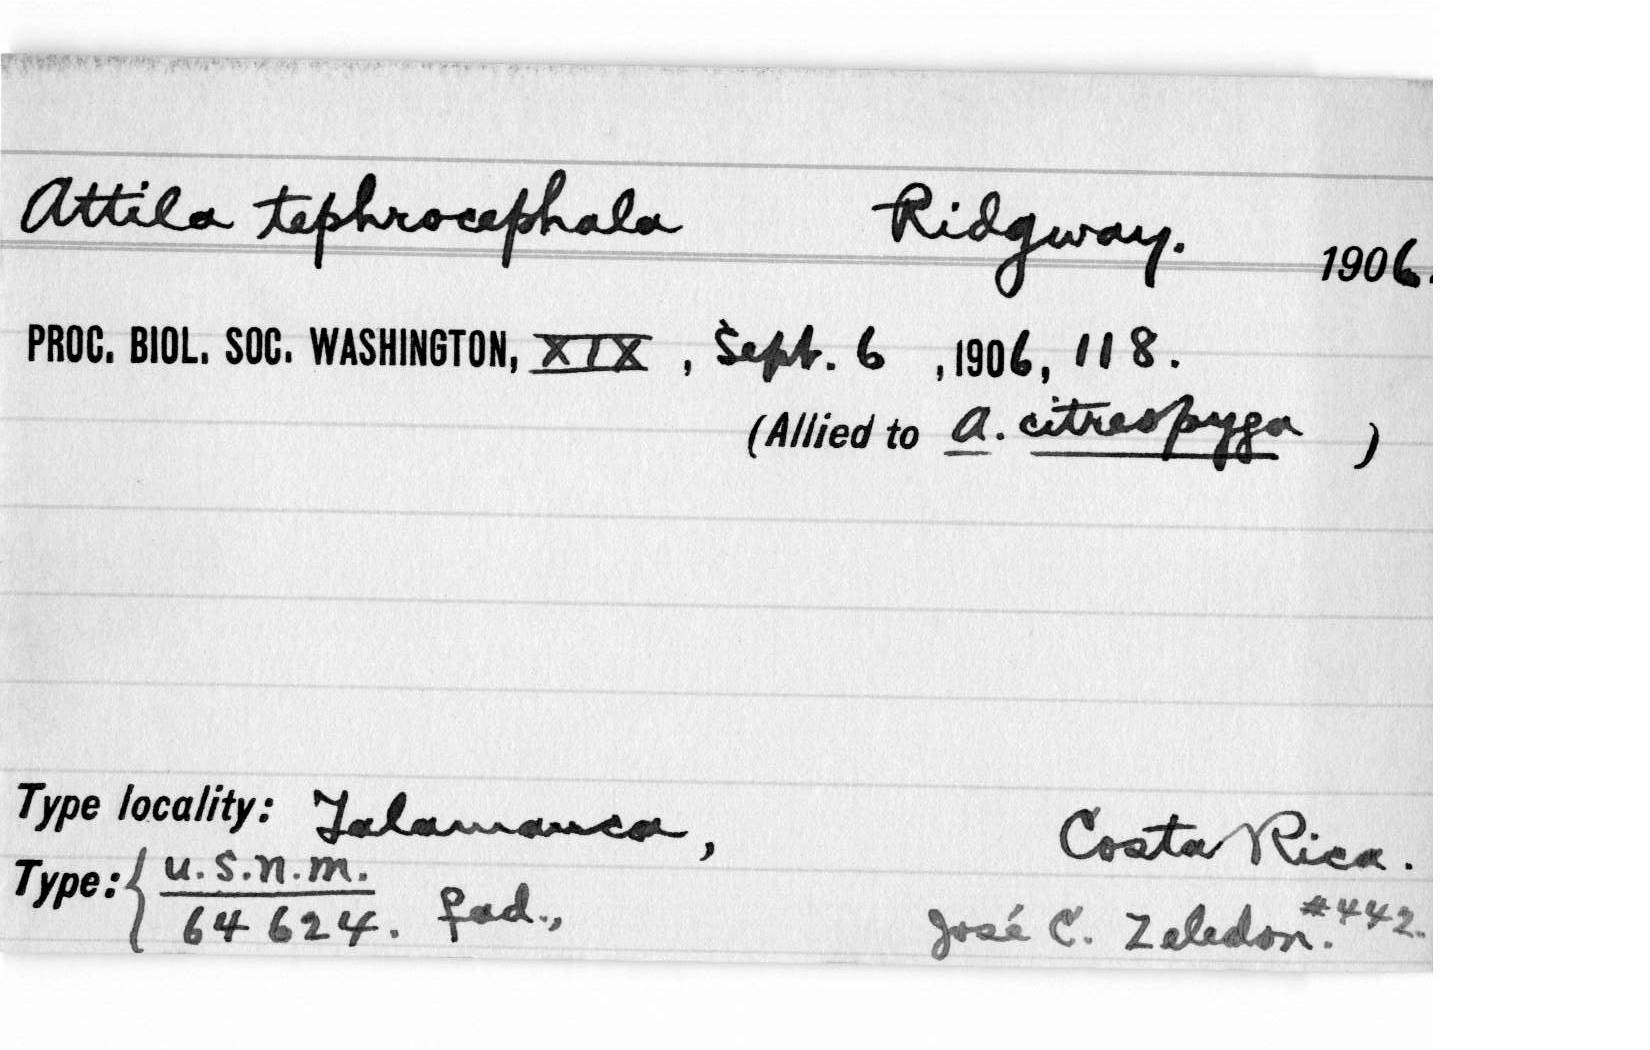 Attila tephrocephala Ridgway. 1906.
PROC. BIOL. SOC. WASHINGTON, XIX, Sept. 6, 1906, 118.
(Allied to A. citreopyga)
Type locality: Talamanca, Costa Rica.
Type: { U.S.N.M.
64624. fad., José C. Zeledon. #442.